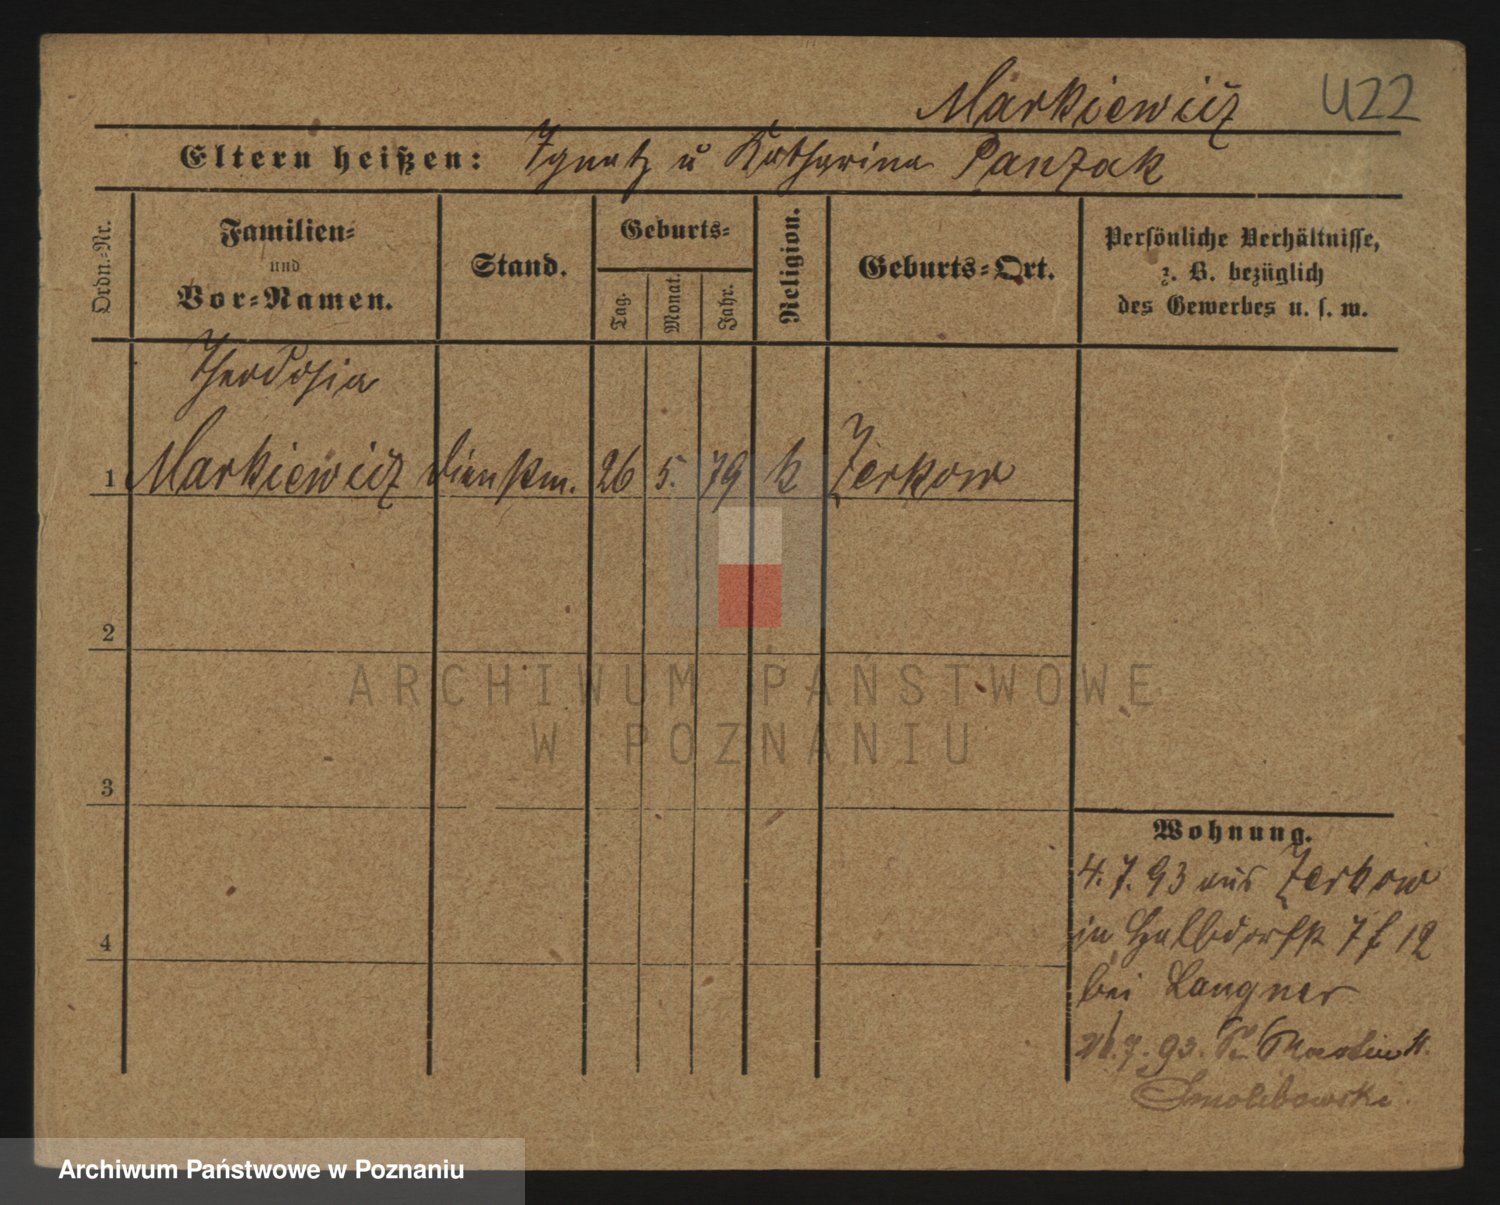 Markiewicz U22
Eltern heißen: Ignatz u Katharina Panzak
Ordn.-Nr.
Familien-
und
Vor-Namen.
Stand.
Geburts-
Tag.
Monat.
Jahr.
Religion.
Geburts-Ort.
Persönliche Verhältnisse,
z. B. bezüglich
des Gewerbes u. s. w.
Theodosia
1 Markiewicz Dienstm. 26 5. 79 k Zerkow
2
3
4
Wohnung.
4. 7. 93 aus Zerkow
in Halbdorfst 7 f 12
bei Langner
7. 93. St Martin
Smolibowski.
ARCHIWUM PAŃSTWOWE
W POZNANIU
Archiwum Państwowe w Poznaniu